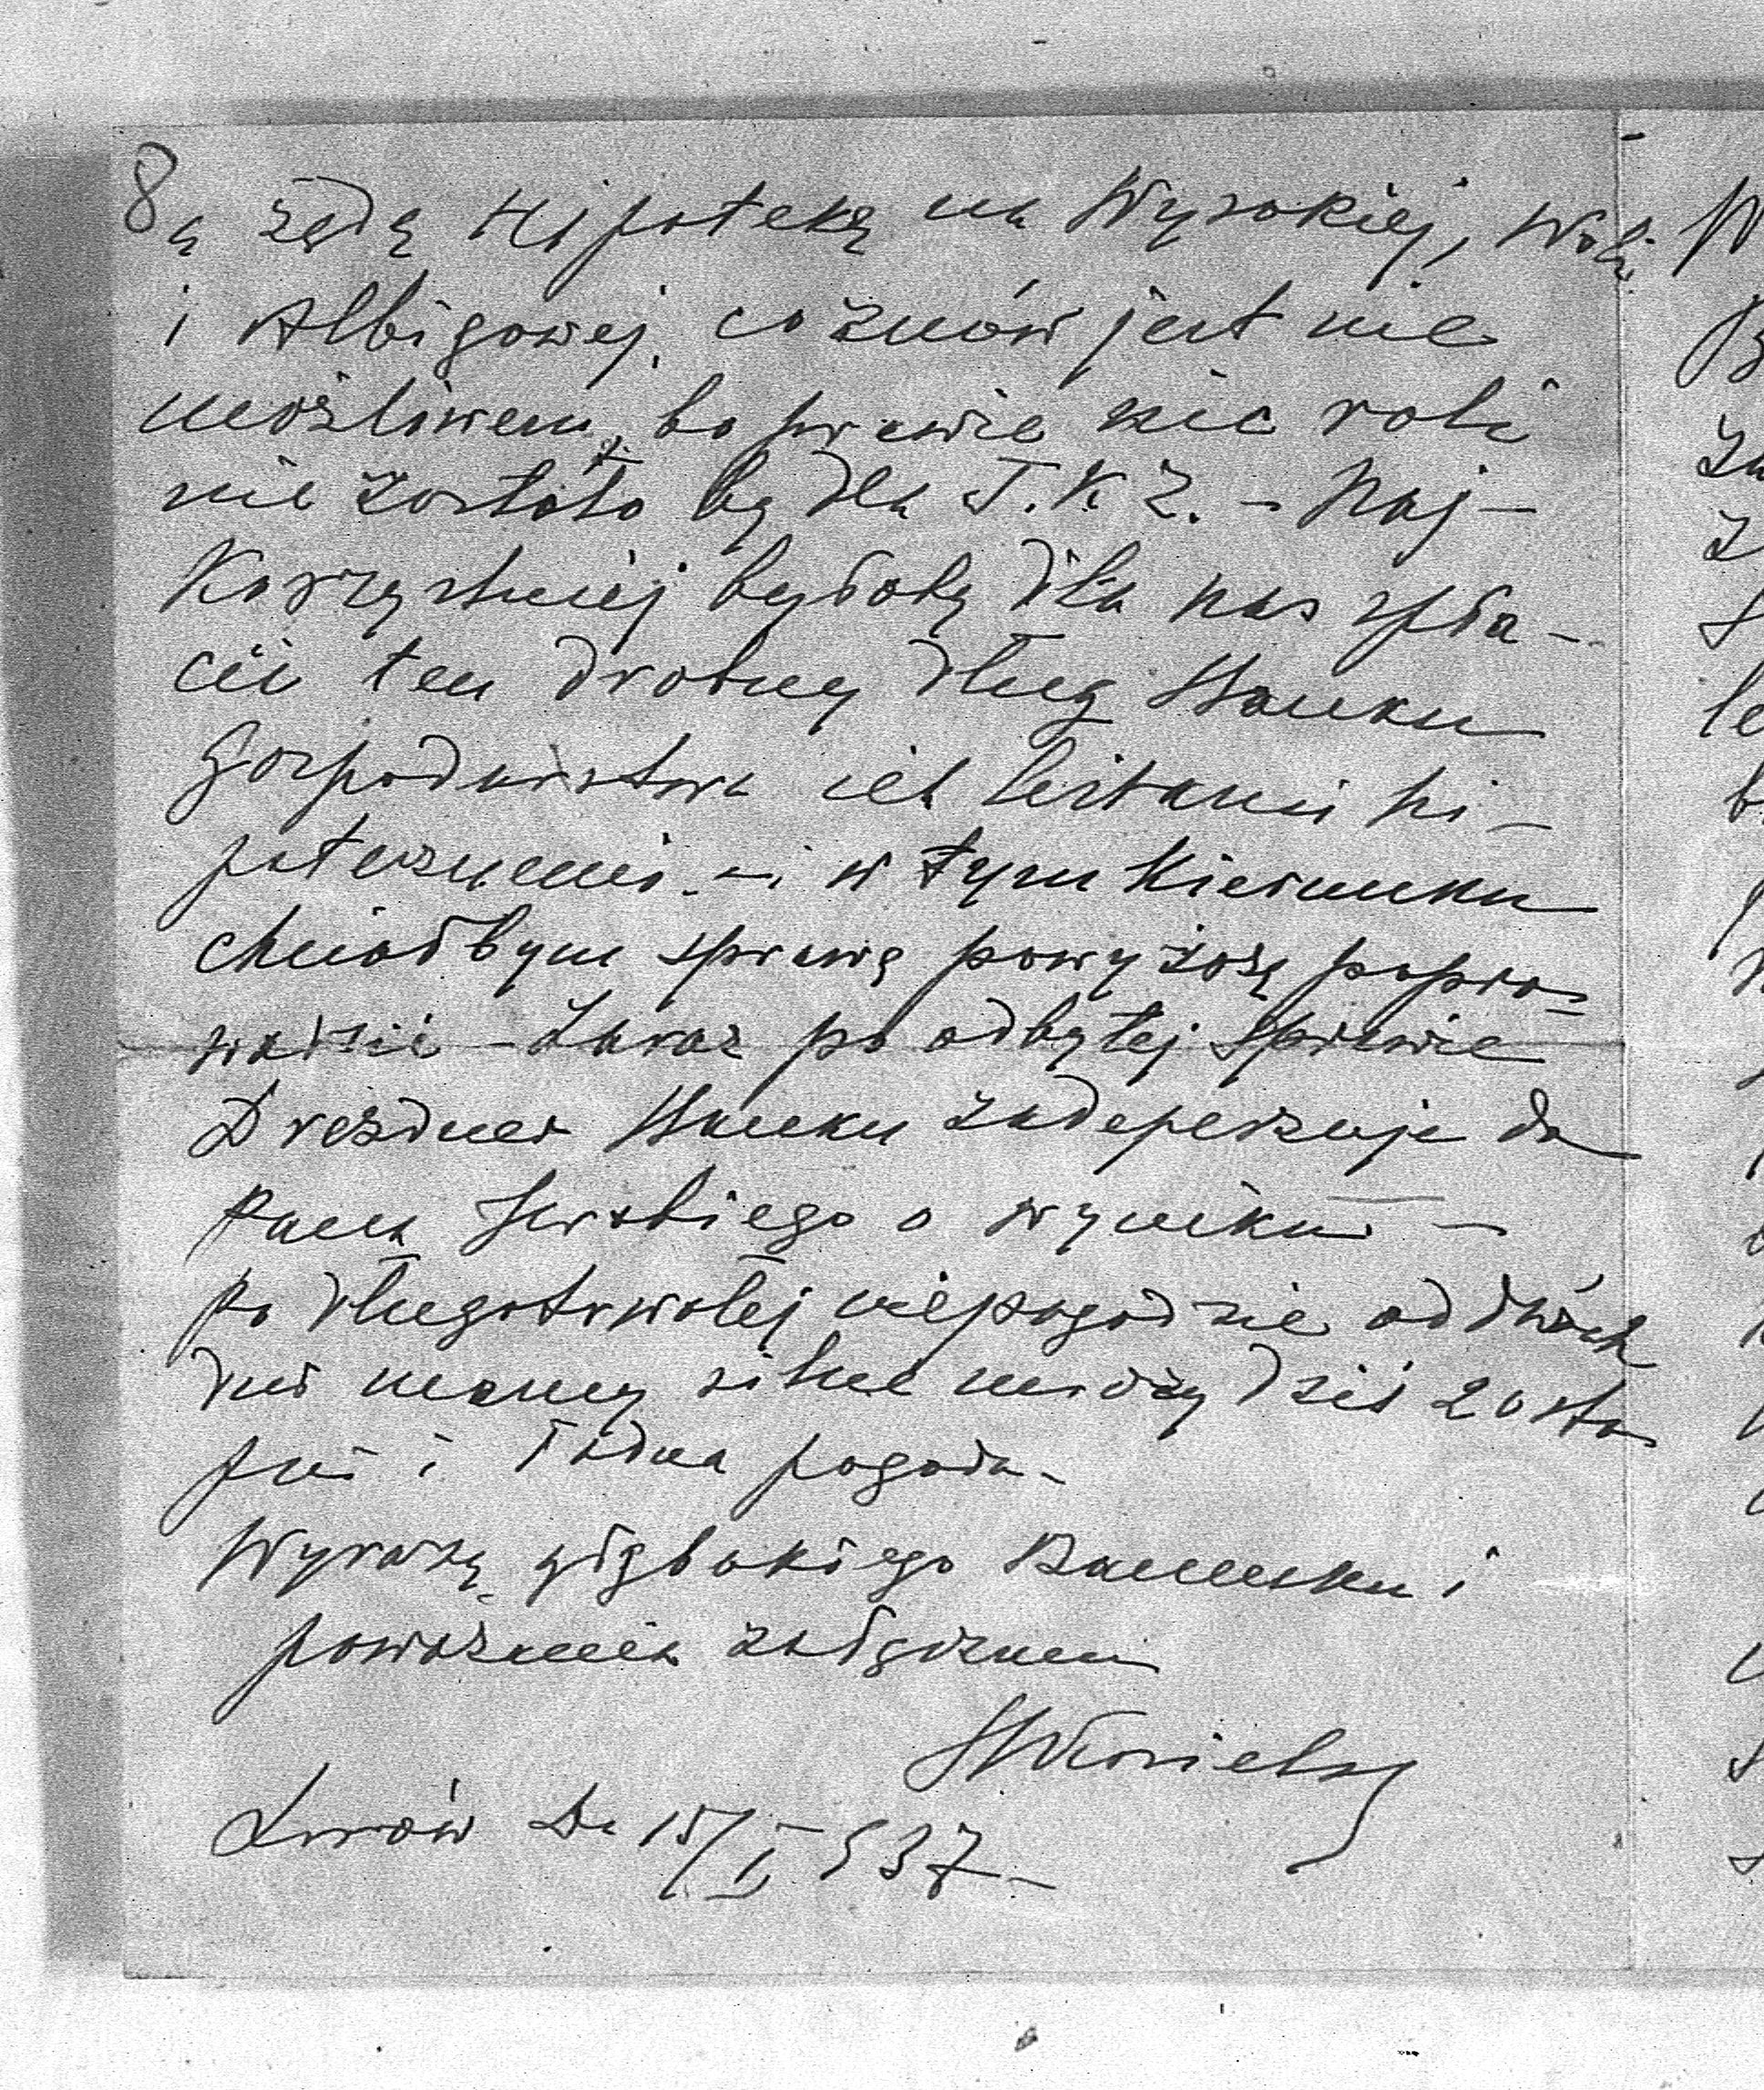 8
a żądą Hipoteką na Wysokiej, Woli
i Albigowej, co znów jest nie
możliwem, bo prawie nic roli
nie zostało by dla T.K.Z. - Naj-
korzystniej byłoby dla nas spła-
cić ten drobny dług Banku
Gospodarstwa
potecznemi - i w tym kierunku
chciałbym sprawę powyższą popro-
wadzić - Zaraz po odbytej sprawie
Drezdner Banku zadepeszuję do
Pana o wyniku -
Po długotrwałej niepogodzie od dwóch
dni mamy silne mrozy dziś 20 sto
pni i ładna pogoda -
Wyrazy głębokiego szacunku i
poważania załączam
Lwów d. 15/I 937 -